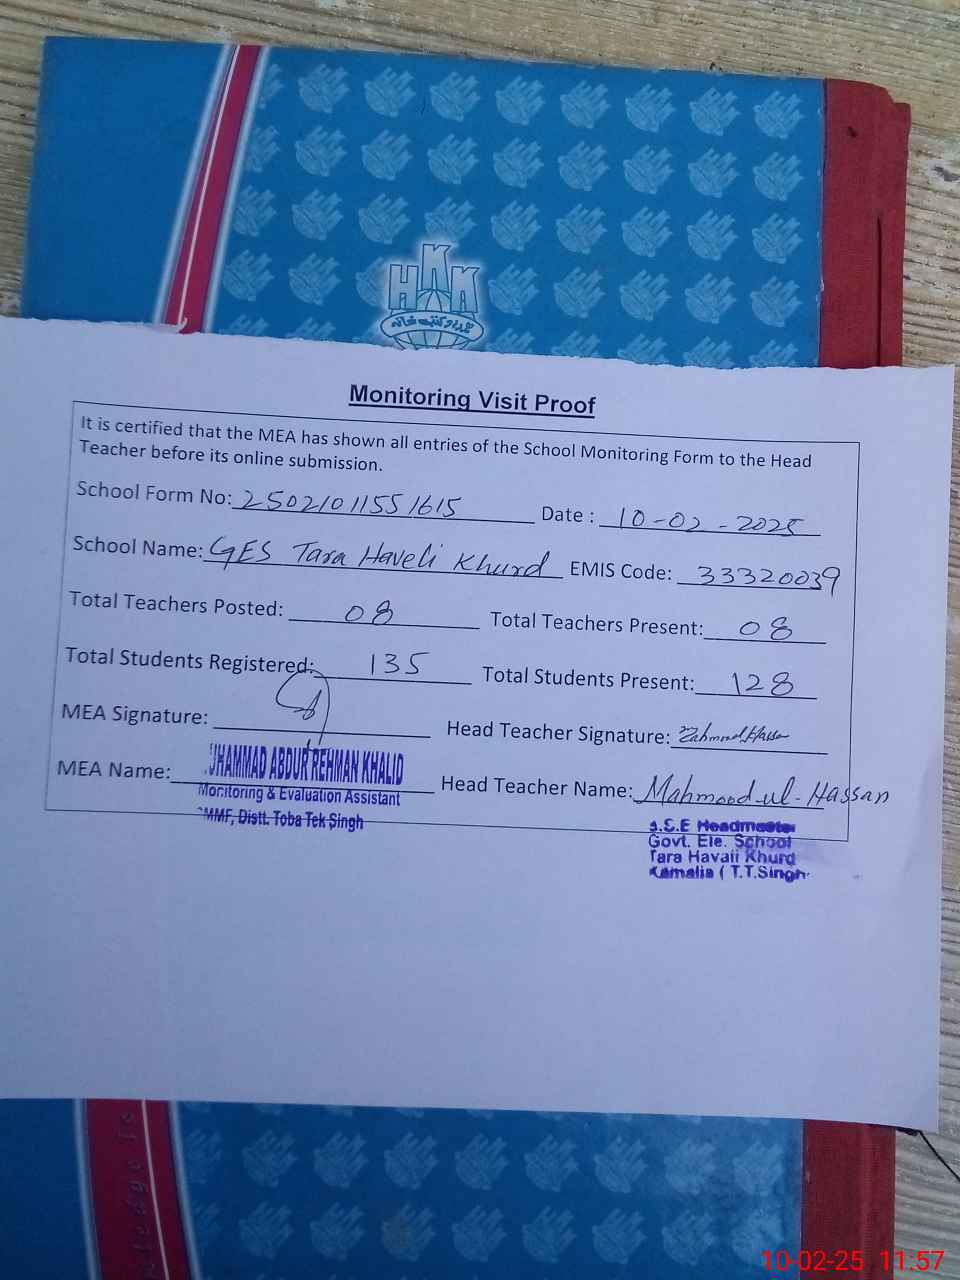 HKK
Monitoring Visit Proof
It is certified that the MEA has shown all entries of the School Monitoring Form to the Head
Teacher before its online submission.
School Form No: 2502101155 1615 Date : 10-02-2025
School Name: GES Tara Haveli Khurd EMIS Code: 33320039
Total Teachers Posted: 08 Total Teachers Present: 08
Total Students Registered: 135 Total Students Present: 128
MEA Signature: Head Teacher Signature:
MEA Name: UHAMMAD ABDUR REHMAN KHALID Head Teacher Name: Mahmood-ul-Hassan
Monitoring & Evaluation Assistant
MMF, Distt. Toba Tek Singh
S.S.E Headmaster
Govt. Ele. School
Tara Havali Khurd
Kamalia ( T.T.Singh
10-02-25 11:57